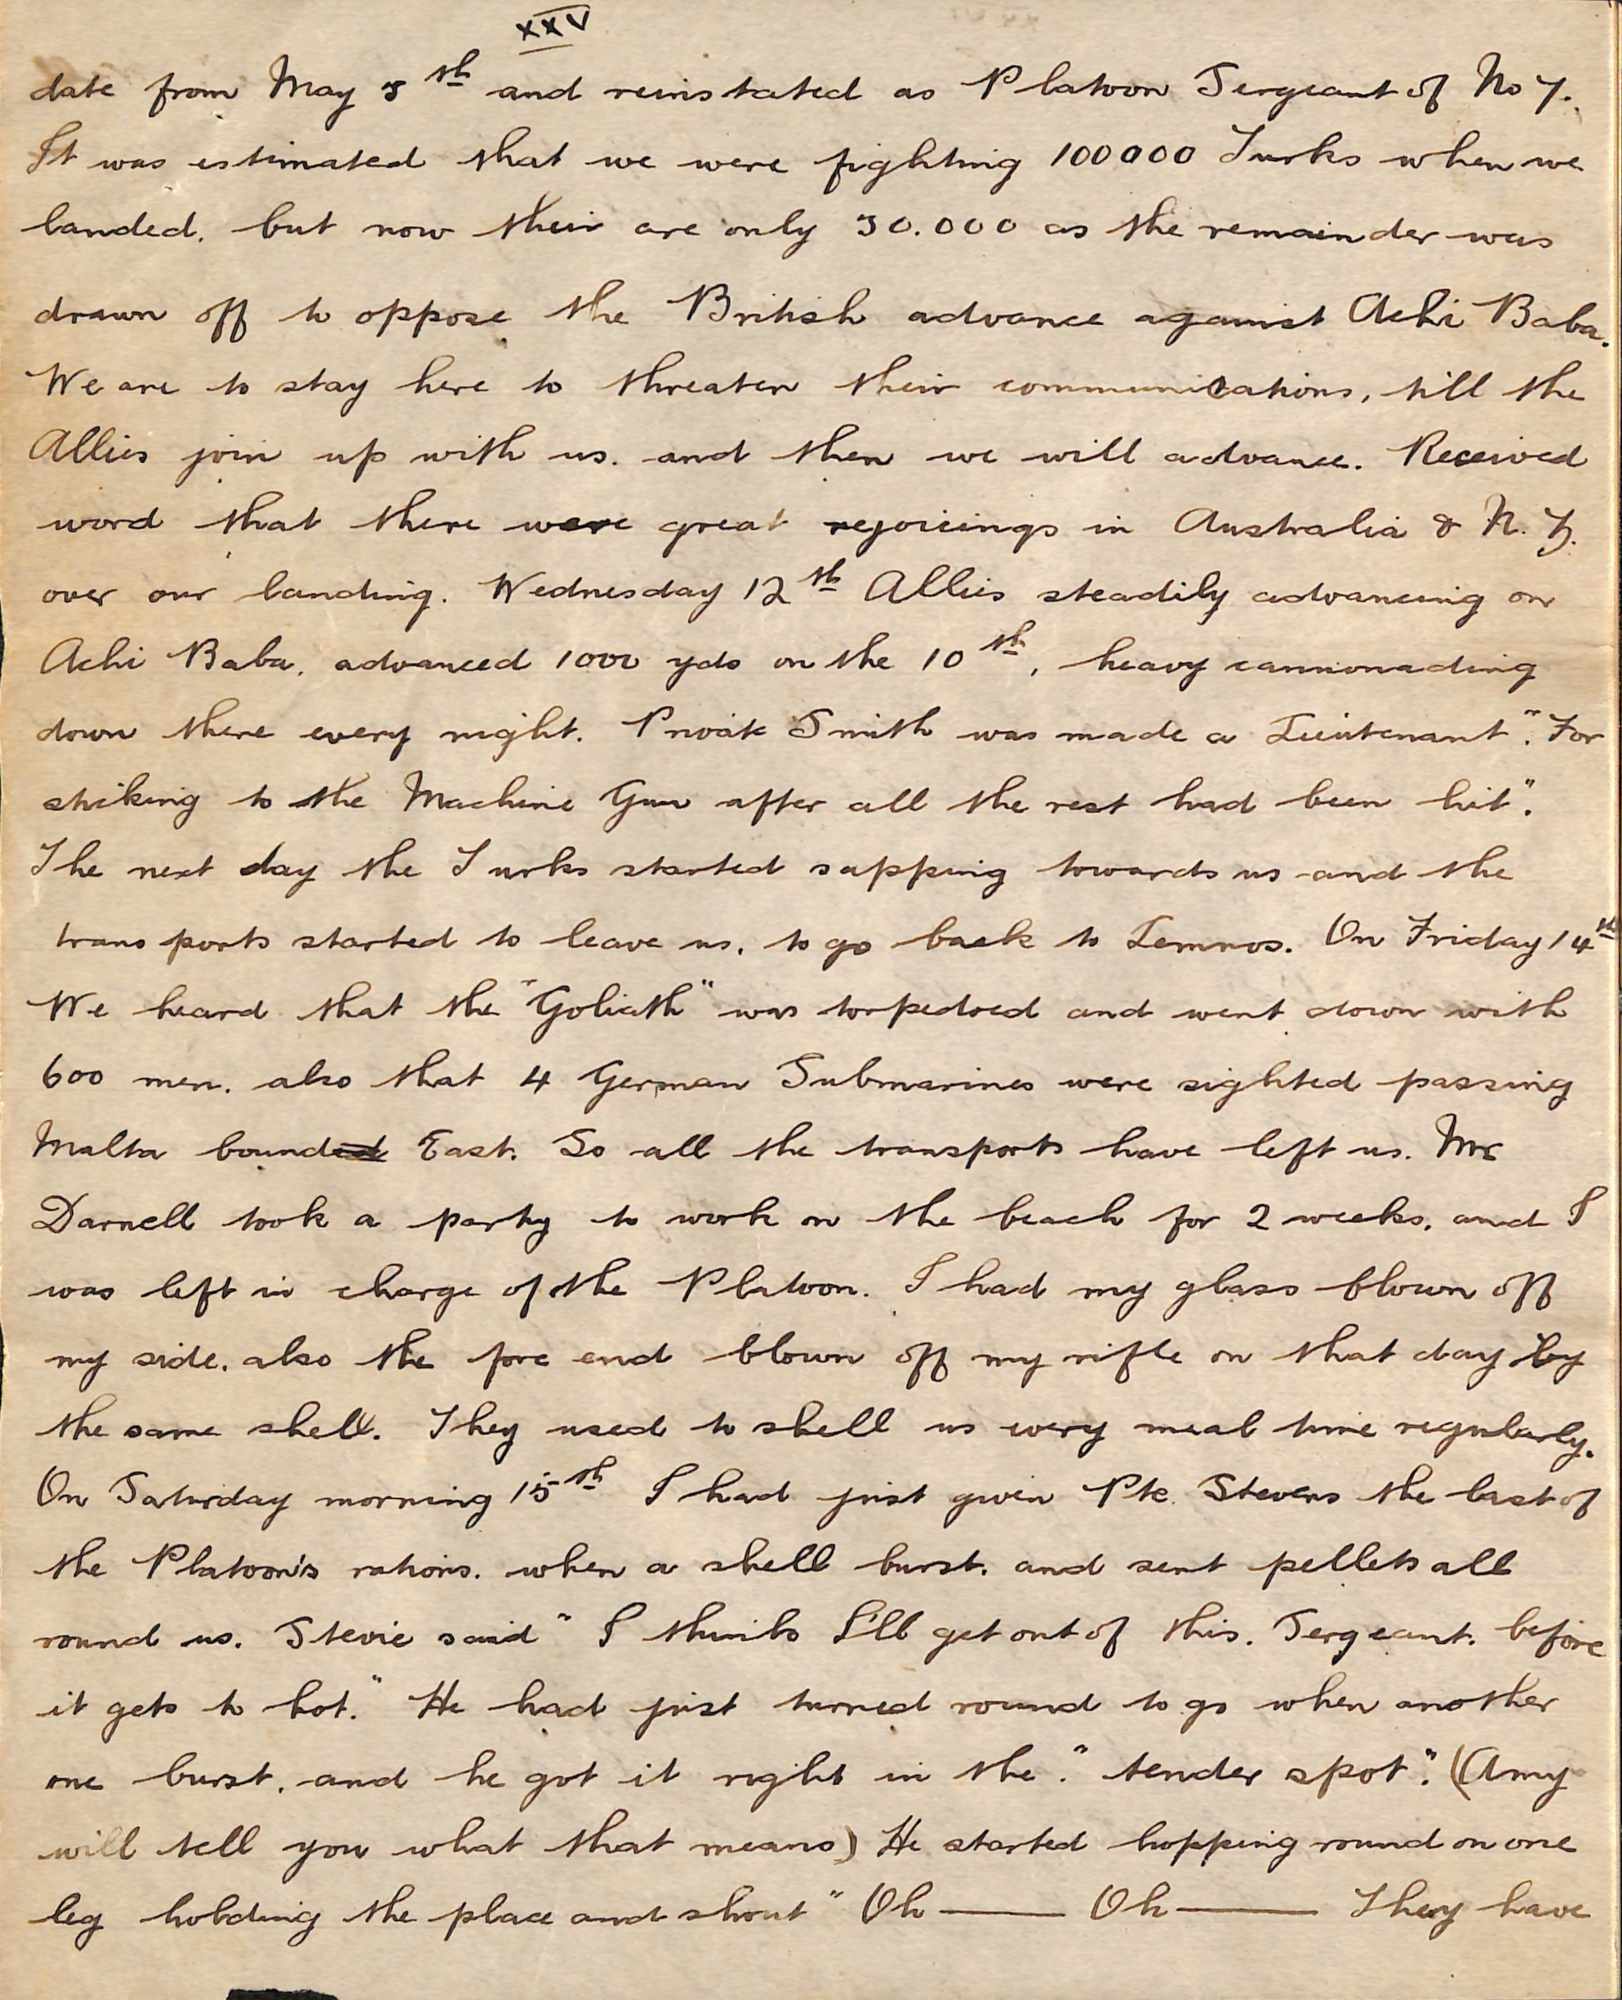 XXV
date from May 5th and reinstated as Platoon Sergeant of No 7.
It was estimated that we were fighting 100000 Turks when we
landed. but now their are only 30.000 as the remainder was
drawn off to oppose the British advance against Achi Baba.
We are to stay here to threaten their communications, till the
Allies join up with us. and then we will advance. Received
word that there were great rejoicings in Australia & N. Z.
over our landing. Wednesday 12th Allies steadily advancing on
Achi Baba. advanced 1000 yds on the 10th, heavy cannonading
down there every night. Private Smith was made a Lieutenant". For
sticking to the Machine Gun after all the rest had been hit".
The next day the Turks started sapping towards us and the
transports started to leave us, to go back to Lemnos. On Friday 14th
We heard that the "Goliath" was torpedoed and went down with
600 men. also that 4 German Submarines were sighted passing
Malta bounded East. So all the transports have left us. Mr
Darnell took a party to work on the beach for 2 weeks, and I
was left in charge of the Platoon. I had my glass blown off
my side. also the fore end blown off my rifle on that day by
the same shell. They used to shell us every meal time regularly.
On Saturday morning 15th I had just given Pte. Stevens the last of
the Platoon's rations. when a shell burst. and sent pellets all
round us. Stevie said " I thinks I'll get out of this. Sergeant. before
it gets to hot." He had just turned round to go when another
one burst. and he got it right in the ". tender spot". (Amy
will tell you what that means) He started hopping round on one
leg holding the place and shout " Oh —— Oh —— They have